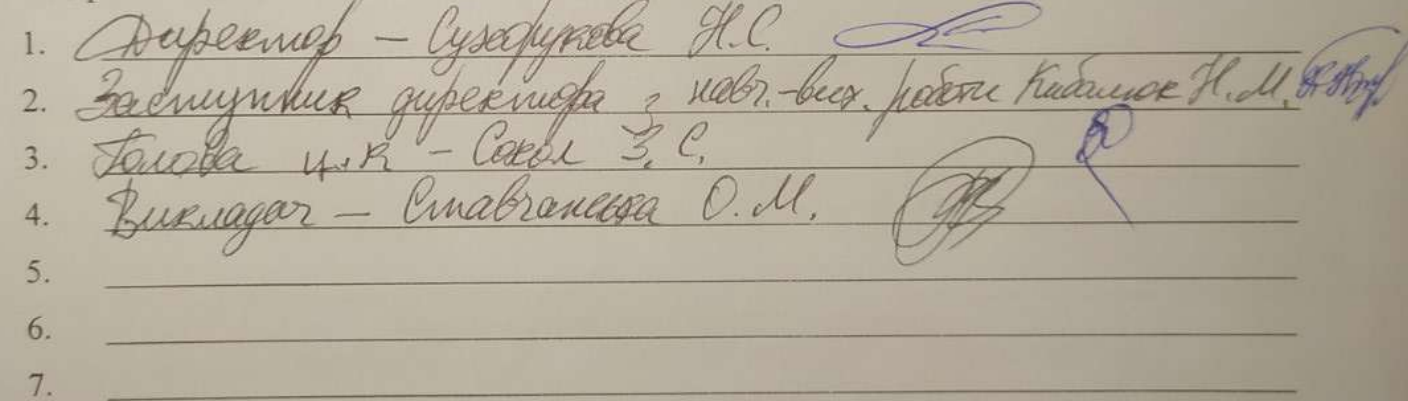 1. Директор – Н.С.
2. Заступник директора з навч.-вих. роботи Кибалюк Н.М.
3. Голова ц.к – Сокол З.С.
4. Викладач – Ставчанська О.М.
5.
6.
7.